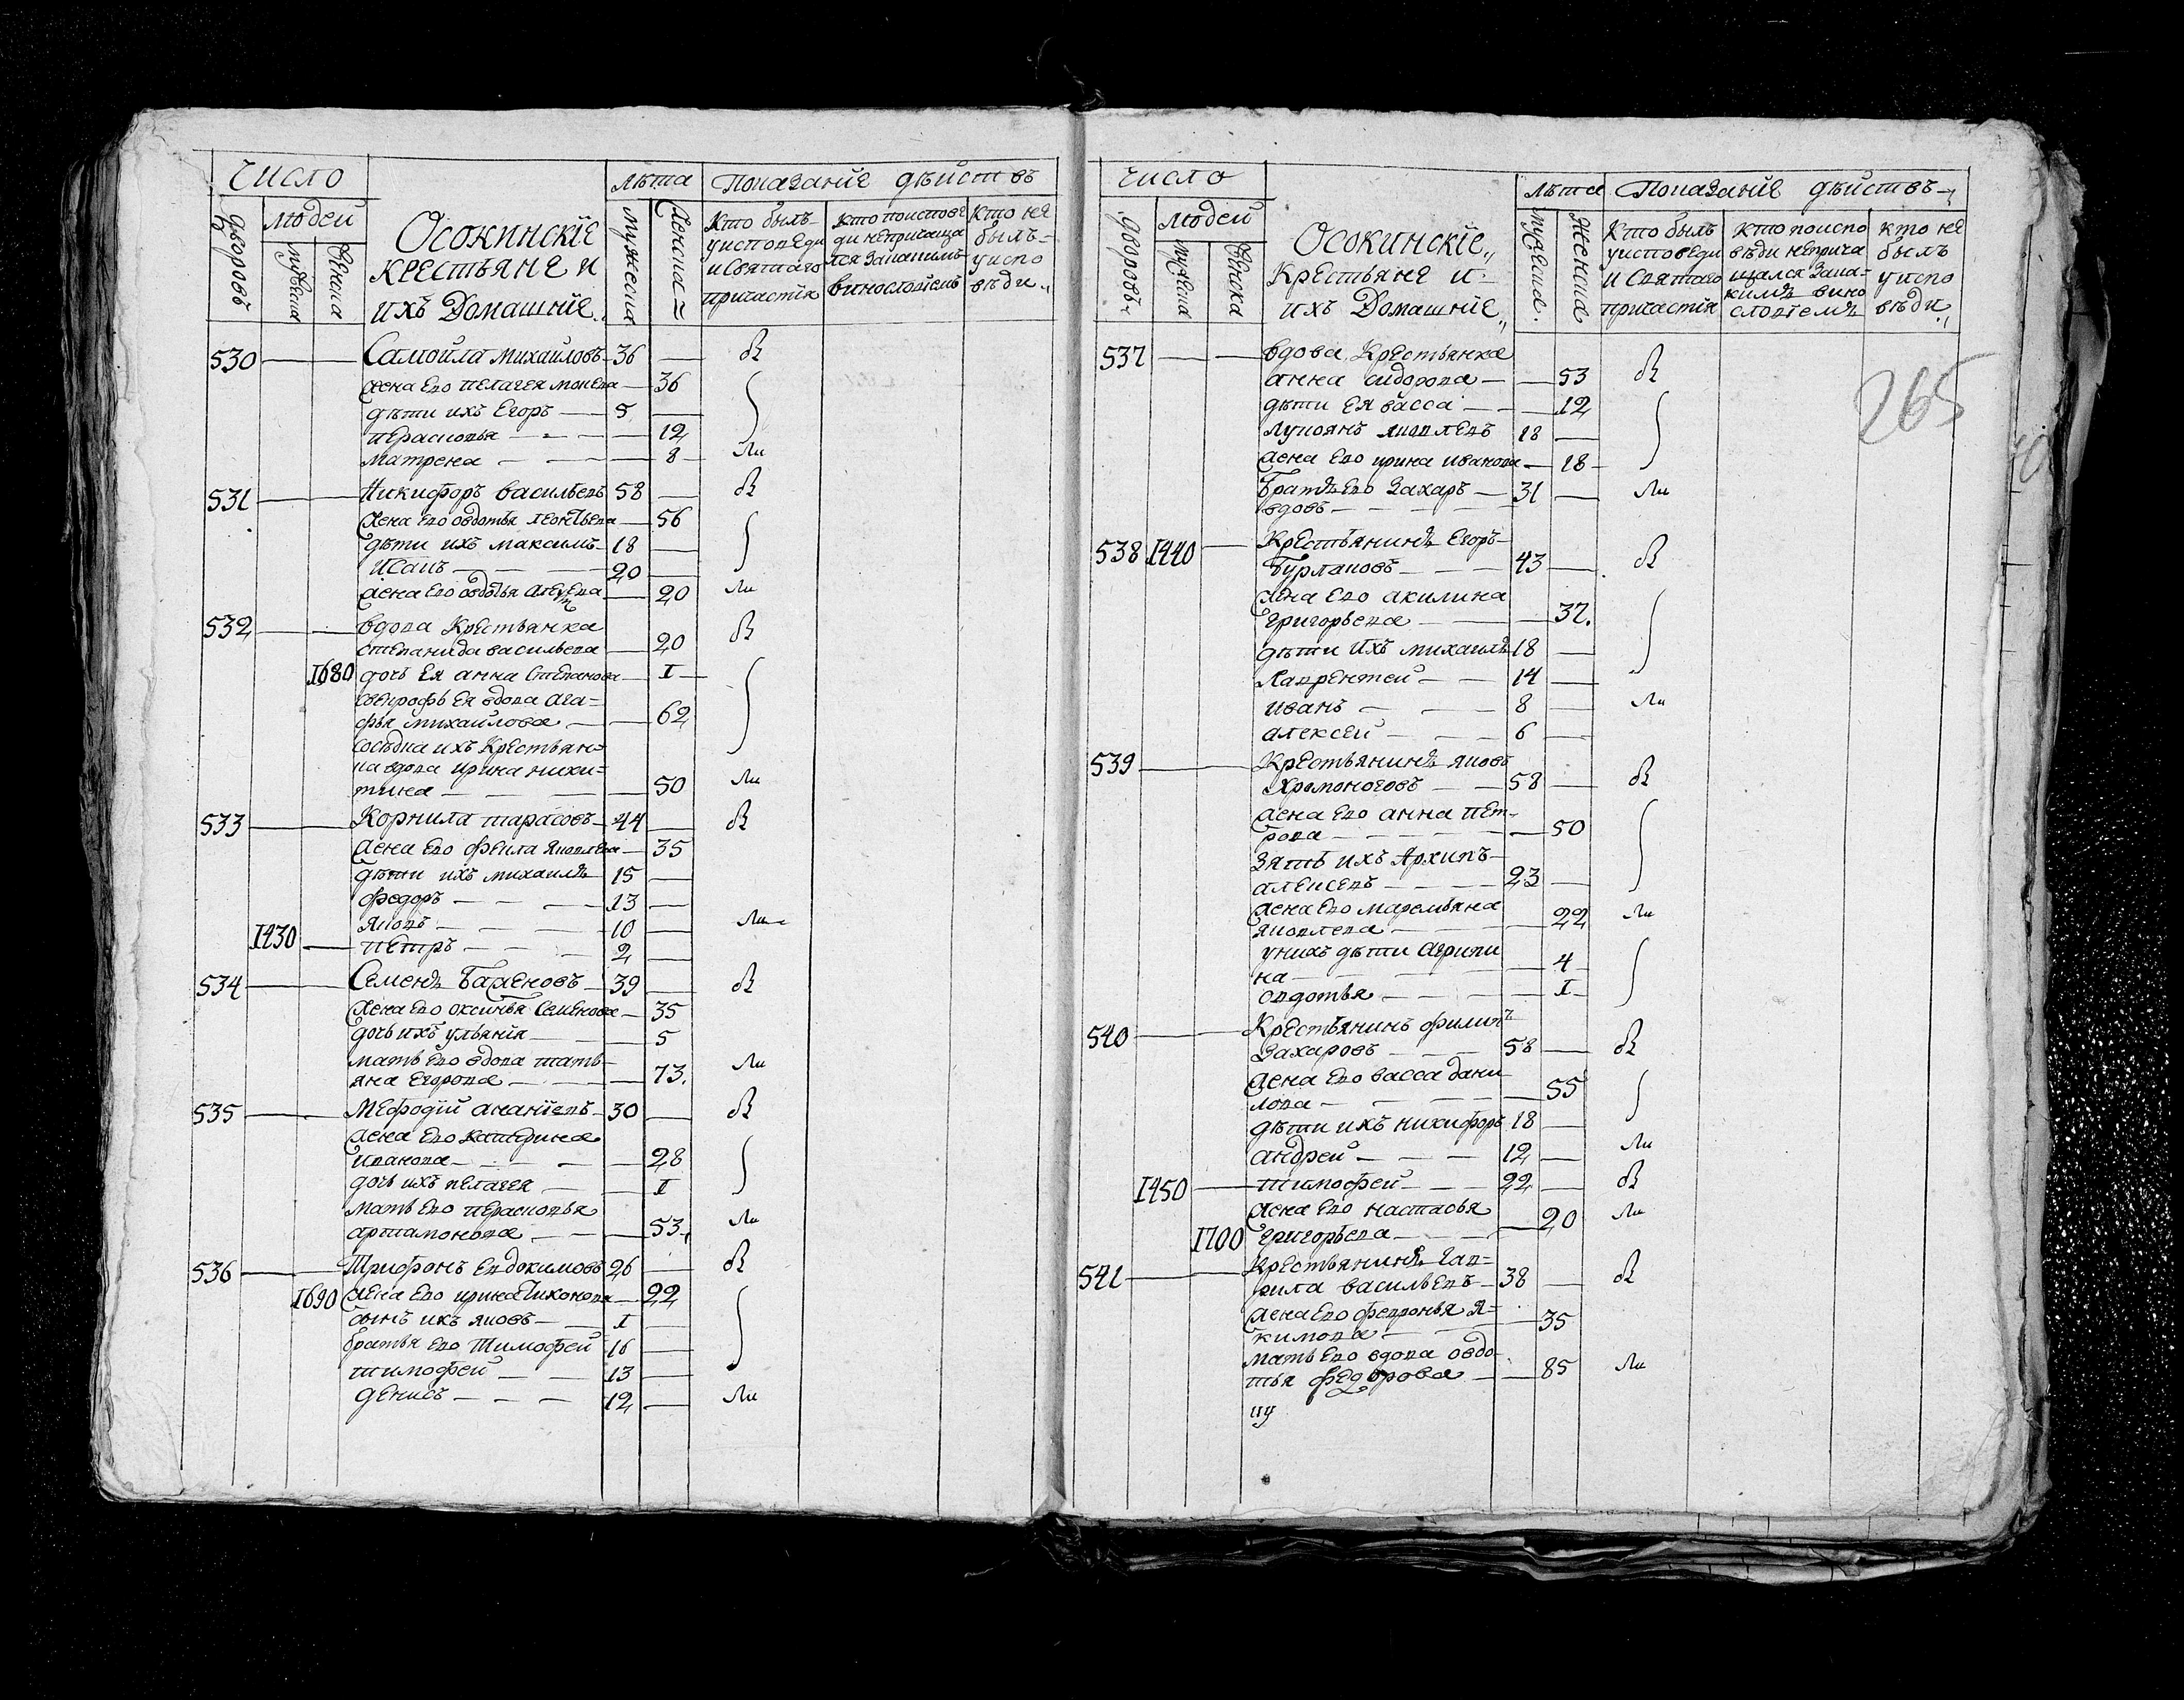 число
лѣта Показанїе дѣйствъ
дворовъ
людей
мужеска
женска
Осокинскїе
крестьяне и
ихъ Домашнїе
мужеска
женска
кто былъ
уисповеди
и Святаго
причастїя
кто поиспове
ди непричаща
лся Закакимъ
винословїемъ
кто не
былъ
уиспо
вѣди
530 Самойла михайловъ 36 — В
жена его пелагея 36
дѣти ихъ Егоръ 5
перасковья 12
матрена 8 Ли
531 Никифоръ васильевъ 58 — В
жена его овдотья леонтьева 56
дѣти ихъ максимъ 18
Исакъ 20
жена его овдотья 20 Ли
532 вдова Крестьянка
степанида васильева 20 В
1680 дочь ея анна степанова 1
свекровь ея вдова Ага-
фья михайлова 62
сосѣдка ихъ Крестьян-
ка вдова ирина ники-
тина 50 Ли
533 Корнила тарасовъ 44 — В
жена его фекла яковлева 35
дѣти ихъ михаилъ 15
федоръ 13
яковъ 10 Ли
1430 петръ 2
534 Семенъ Баженовъ 39 — В
жена его оксинья Семенова 35
дочь ихъ ульянїя 5
мать его вдова тать-
яна егорова 73. Ли
535 Мефодїй ананїевъ 30 — В
жена его катерина
иванова 28
дочь ихъ пелагея 1
мать его перасковья
артамонова 53 Ли
536 Трифонъ евдокимовъ 26 — В
1690 жена его ирина тихонова 22
сынъ ихъ яковъ 1
братья его Тимофей 16
тимофей 13
денисъ 12 Ли
число
лѣта Показанїе дѣйствъ
дворовъ
людей
мужеска
женска
Осокинскїе
Крестьяне и
ихъ Домашнїе
мужеска
женска
Кто былъ
уисповеди
и Святаго
причастїя
кто поиспо
вѣди неприча
щался Зака-
кимъ вино
словїемъ
кто не
былъ
уиспо
вѣди
265
537 вдова Крестьянка
анна сидорова 53 В
дѣти ея васса 12
лукоянъ яковлевъ 18
жена его ирина иванова 18
братъ его Захаръ 31 — Ли
вдовъ
538 1440 Крестьянинъ Егоръ
Бурлаковъ 43 — В
жена его акилина
григорьева 37.
дѣти ихъ михаилъ 18
Лаврентей 14
иванъ 8 Ли
алексей 6
539 Крестьянинъ яковъ
Хромоноговъ 58 — В
жена его анна пет-
рова 50
зять ихъ Архипъ
алексеевъ 23
жена его маремьяна
яковлева 22 Ли
унихъ дѣти агрипи
на 4
овдотья 1
540 Крестьянинъ филипъ
Захаровъ 58 — В
жена его васса дани
лова 55
дѣти ихъ никифоръ 18
андрей 12 Ли
1450 тимофей 22 — В
жена его настасья
1700 григорьева 20 Ли
541 Крестьянинъ гав-
рила васильевъ 38 — В
жена его февронья я-
кимова 35
мать его вдова овдо-
тья федорова 85 Ли